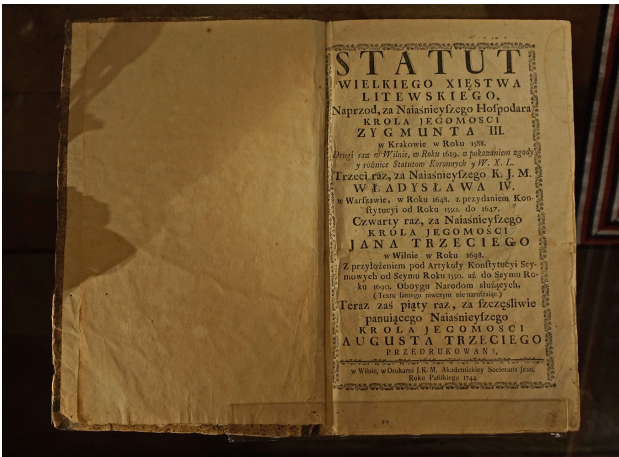 STATUT
WIELKIEGO XIĘSTWA
LITEWSKIEGO.
Naprzod, za Naiaśnieyszego Hospodara
KROLA JEGOMOSCI
ZYGMUNTA III.
w Krakowie w Roku 1588.
Drugi raz w Wilnie, w Roku 1619. z pokazaniem zgody
y roźnice Statutow Koronnych y W. X. L.
Trzeci raz, za Naiaśnieyszego K. J. M.
WŁADYSŁAWA IV.
w Warszawie, w Roku 1648. z przydaniem Kon-
stytucyi od Roku 1550. do 1647.
Czwarty raz, za Naiaśnieyszego
KROLA JEGOMOSCI
JANA TRZECIEGO
w Wilnie w Roku 1698.
Z przyłożeniem pod Artykuły Konstytucyi Sey-
mowych od Seymu Roku 1550. aż do Seymu Ro-
ku 1690. Oboygu Narodom służących,
( Textu samego niwczym nie narusząiąc )
Teraz zaś piąty raz, za szczęśliwie
panuiącego Naiaśnieyszego
KROLA JEGOMOSCI
AUGUSTA TRZECIEGO
PRZEDRUKOWANY,
w Wilnie, w Drukarni J. K M. Akademickiey Societatis Jesu,
Roku Pańskiego 1744.